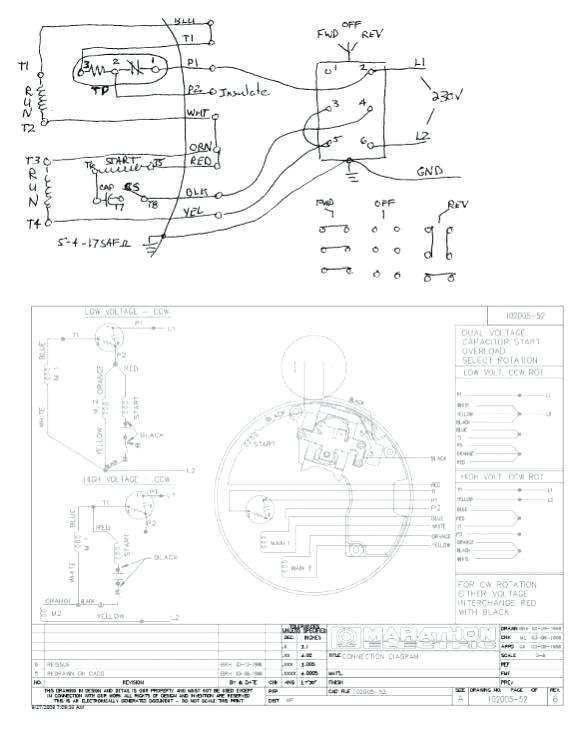 BLU
T1
OFF
FWD
REV
P1
L1
3
2
1
1
2
T1
TP
R
U
N
P2
Insulate
WHT
3
4
230V
T2
ORN
5
6
L2
T3
T6
START
T5
RED
R
U
N
CAP
BLK
GND
T7
T8
YEL
T4
FWD
OFF
REV
LOW VOLTAGE - CCW
P1
L1
T1
P2
BLUE
RED
ORANGE
M 1
M 2
START
WHITE
YELLOW
BLACK
L2
HIGH VOLTAGE - CCW
P1
L1
T1
P2
BLUE
RED
START
BLACK
WHITE
ORANGE
BLACK
M2
YELLOW
L2
BLACK
START
BLACK
RED
T1
P1
P2
BLUE
WHITE
ORANGE
YELLOW
MAIN 1
MAIN 2
102005-52
DUAL VOLTAGE
CAPACITOR START
OVERLOAD
SELECT ROTATION
LOW VOLT. CCW.ROT
P1
L1
WHITE
YELLOW
L2
BLACK
BLUE
T1
P2
ORANGE
RED
HIGH VOLT. CCW ROT
P1
L1
YELLOW
L2
BLUE
RED
T1
P2
ORANGE
BLACK
WHITE
FOR CW ROTATION
EITHER VOLTAGE
INTERCHANGE RED
WITH BLACK
TOLERANCES
UNLESS SPECIFIED
DEC. INCHES
MARATHON
ELECTRIC
TITLE CONNECTION DIAGRAM
DRAWN
CHK
APPD
SCALE
REF
FMF
PREV
6 REISSUE
5 REDRAWN ON CADD
NO. REVISION BY & DATE CHK
MAT'L.
FINISH
THIS DRAWING IN DESIGN AND DETAIL IS OUR PROPERTY AND MUST NOT BE USED EXCEPT
IN CONNECTION WITH OUR WORK ALL RIGHTS OF DESIGN AND INVENTION ARE RESERVED
THIS IS AN ELECTRONICALLY GENERATED DOCUMENT - DO NOT SCALE THIS PRINT
CAD FILE 102005-52
DIST
SIZE DRAWING NO. PAGE OF REV.
A 102005-52 6